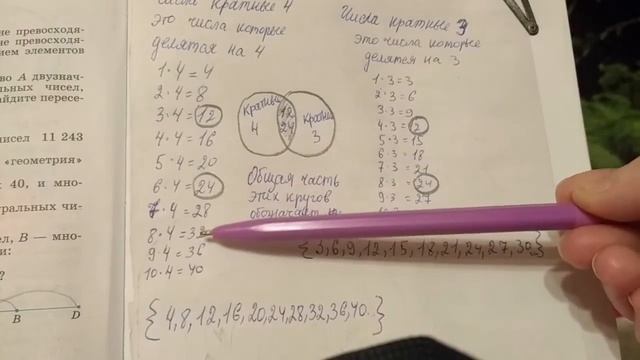 не превосходя-
не превосходя-
ием элементов
во A двузнач-
льных чисел,
айдите пересе-
исел 11 243
«геометрия»
х 40, и мно-
уральных чи-
ел, B — мно-
и:
?
B D
Числа кратные 4
это числа которые
делятся на 4
1·4=4
2·4=8
3·4=12
4·4=16
5·4=20
6·4=24
7·4=28
8·4=32
9 4=36
10·4=40
{4,8,12,16,20,24,28,32,36,40.}
Кратные
4
12
24
Кратные
3
Общая часть
этих кругов
обозначает
Числа кратные 3
это числа которые
делятся на 3
1·3=3
2·3=6
3·3=9
4·3=12
5·3=15
6·3=18
7·3=21
8·3=24
9·3=27
{3,6,9,12,15,18,21,24,27,30}